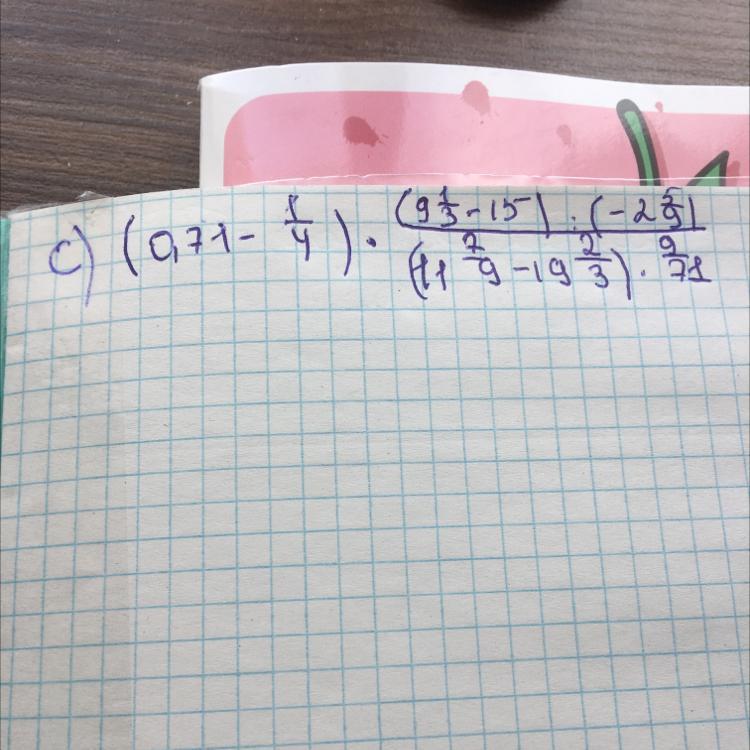 c) (0,71 - 1/4) · ((9 1/3 - 15) : (-2 5/9)) / ((11 7/9 - 19 2/3) · 9/71)